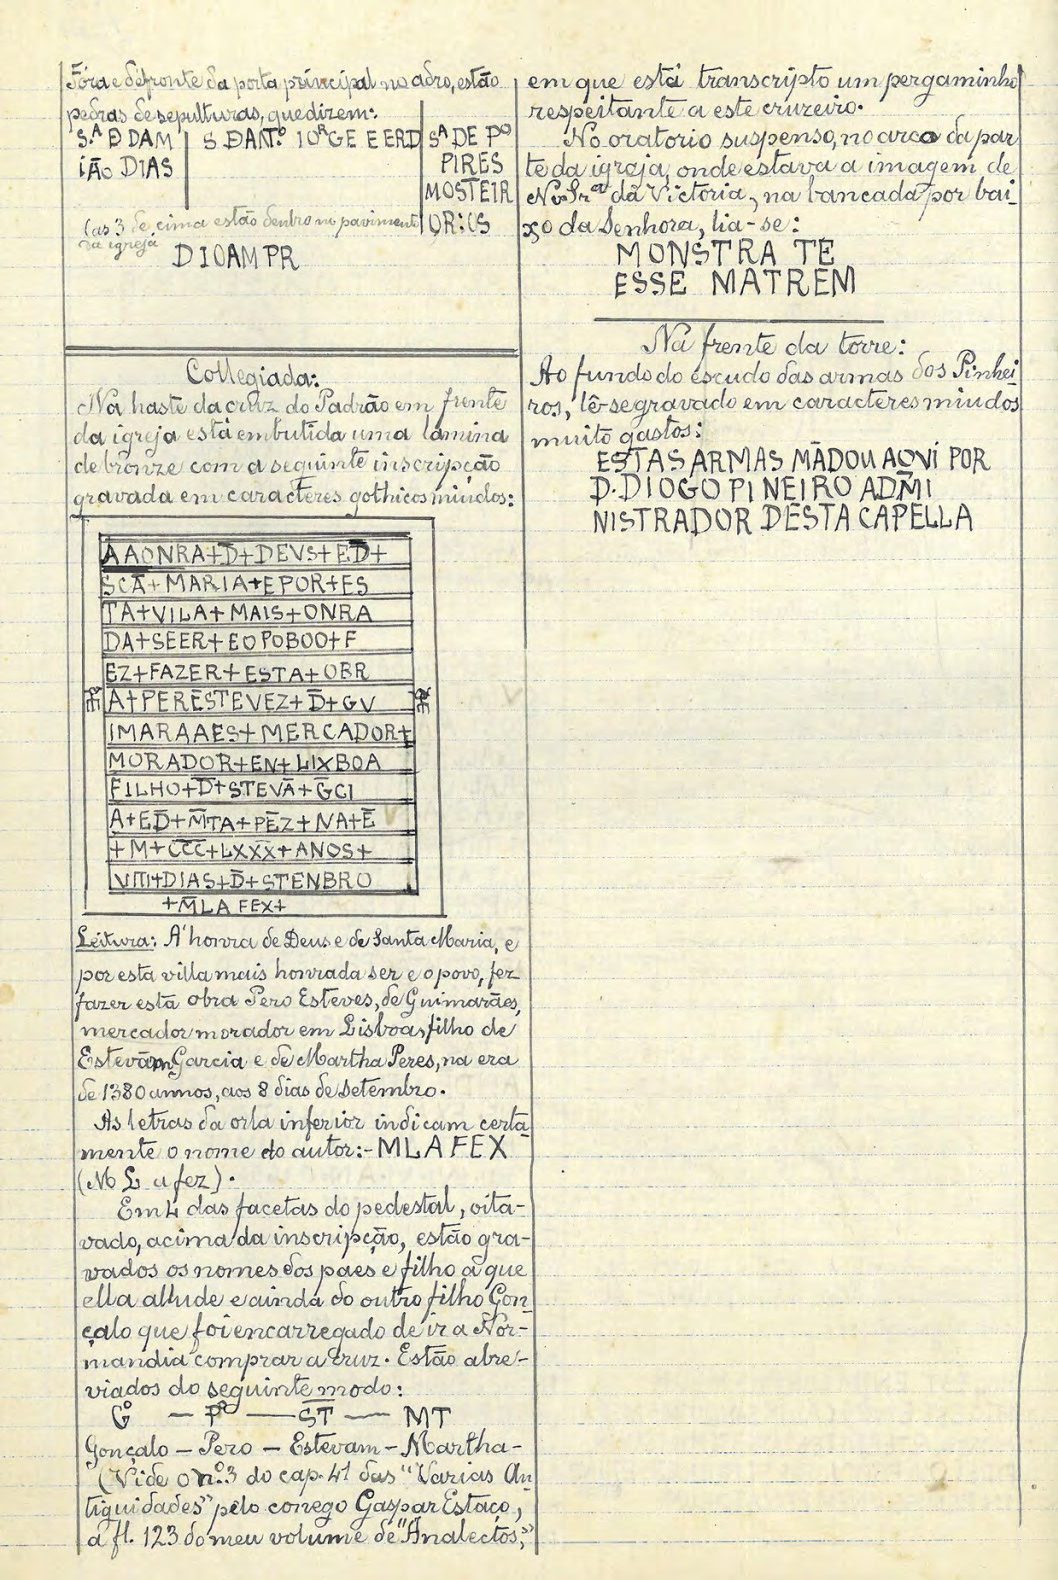 Fóra e defronte da porta principal no adro, estão
pedras de sepulturas, que dizem:
S.ª D DAM
IÃO DIAS
S. DANT.º IORGE E ERD
Sª DE Pº
PIRES
MOSTEIR
OR:OS
(as 3 de cima estão dentro no pavimento
da igreja
DIOAMPR
Collegiada:
Na haste da cruz do Padrão em frente
da igreja está embutida uma lamina
de bronze com a seguinte inscripção
gravada em caracteres gothicos miudos:
AAONRA+D̄+DEVS+ED̄+
SCĀ+MARIA+EPOR+ES
TA+VILA+MAIS+ONRA
DA+SEER+EOPOBOO+F
EZ+FAZER+ESTA+OBR
A+PERESTEVEZ+D̄+GV
IMARAAES+MERCADOR+
MORADOR+EN+LIXBOA
FILHO+D̄+STEVĀ+ḠCI
A+ED̄+M̄TA+PĒZ+NA+Ē
+M+CCC+LXXX+ANOS+
VIII+DIAS+D̄+STENBRO
+M̄LA FEX+
Leitura: A' honra de Deus e de Santa Maria, e
por esta villa mais honrada ser e o povo, fez
fazer esta obra Pero Esteves, de Guimarães,
mercador morador em Lisboa, filho de
Estevam Garcia e de Martha Peres, na era
de 1380 annos, aos 8 dias de Setembro.
As letras da orla inferior indicam certa-
mente o nome do autor:- MLA FEX
(M L a fez).
Em 4 das facetas do pedestal, oita-
vado, acima da inscripção, estão gra-
vados os nomes dos paes e filho a que
ella allude e ainda do outro filho Gon-
çalo que foi encarregado de ir a Nor-
mandia comprar a cruz. Estão abre-
viados do seguinte modo:
Gº — Pº — S̄T̄ — MT
Gonçalo — Pero — Estevam — Martha -
(Vide o nº 3 do cap. 41 das "Varias An-
tiguidades" pelo conego Gaspar Estaço,
a fl. 123 do meu volume de "Analectos,"
em que está transcripto um pergaminho
respeitante a este cruzeiro.
No oratorio suspenso, no arco da par-
te da igreja, onde estava a imagem de
N. Srª da Victoria, na bancada por bai-
xo da Senhora, lia-se:
MONSTRA TE
ESSE MATREM
Na frente da torre:
Ao fundo do escudo das armas dos Pinhei-
ros, lê-se gravado em caracteres miudos
muito gastos:
ESTAS ARMAS MÃDOU AQVI POR
D. DIOGO PINEIRO ADM̄I
NISTRADOR DESTA CAPELLA